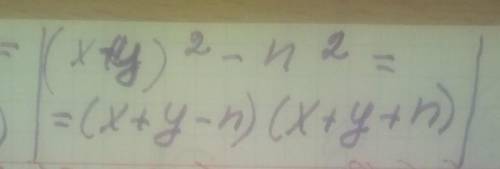 = (x+y)² - n² =
= (x+y-n)(x+y+n)